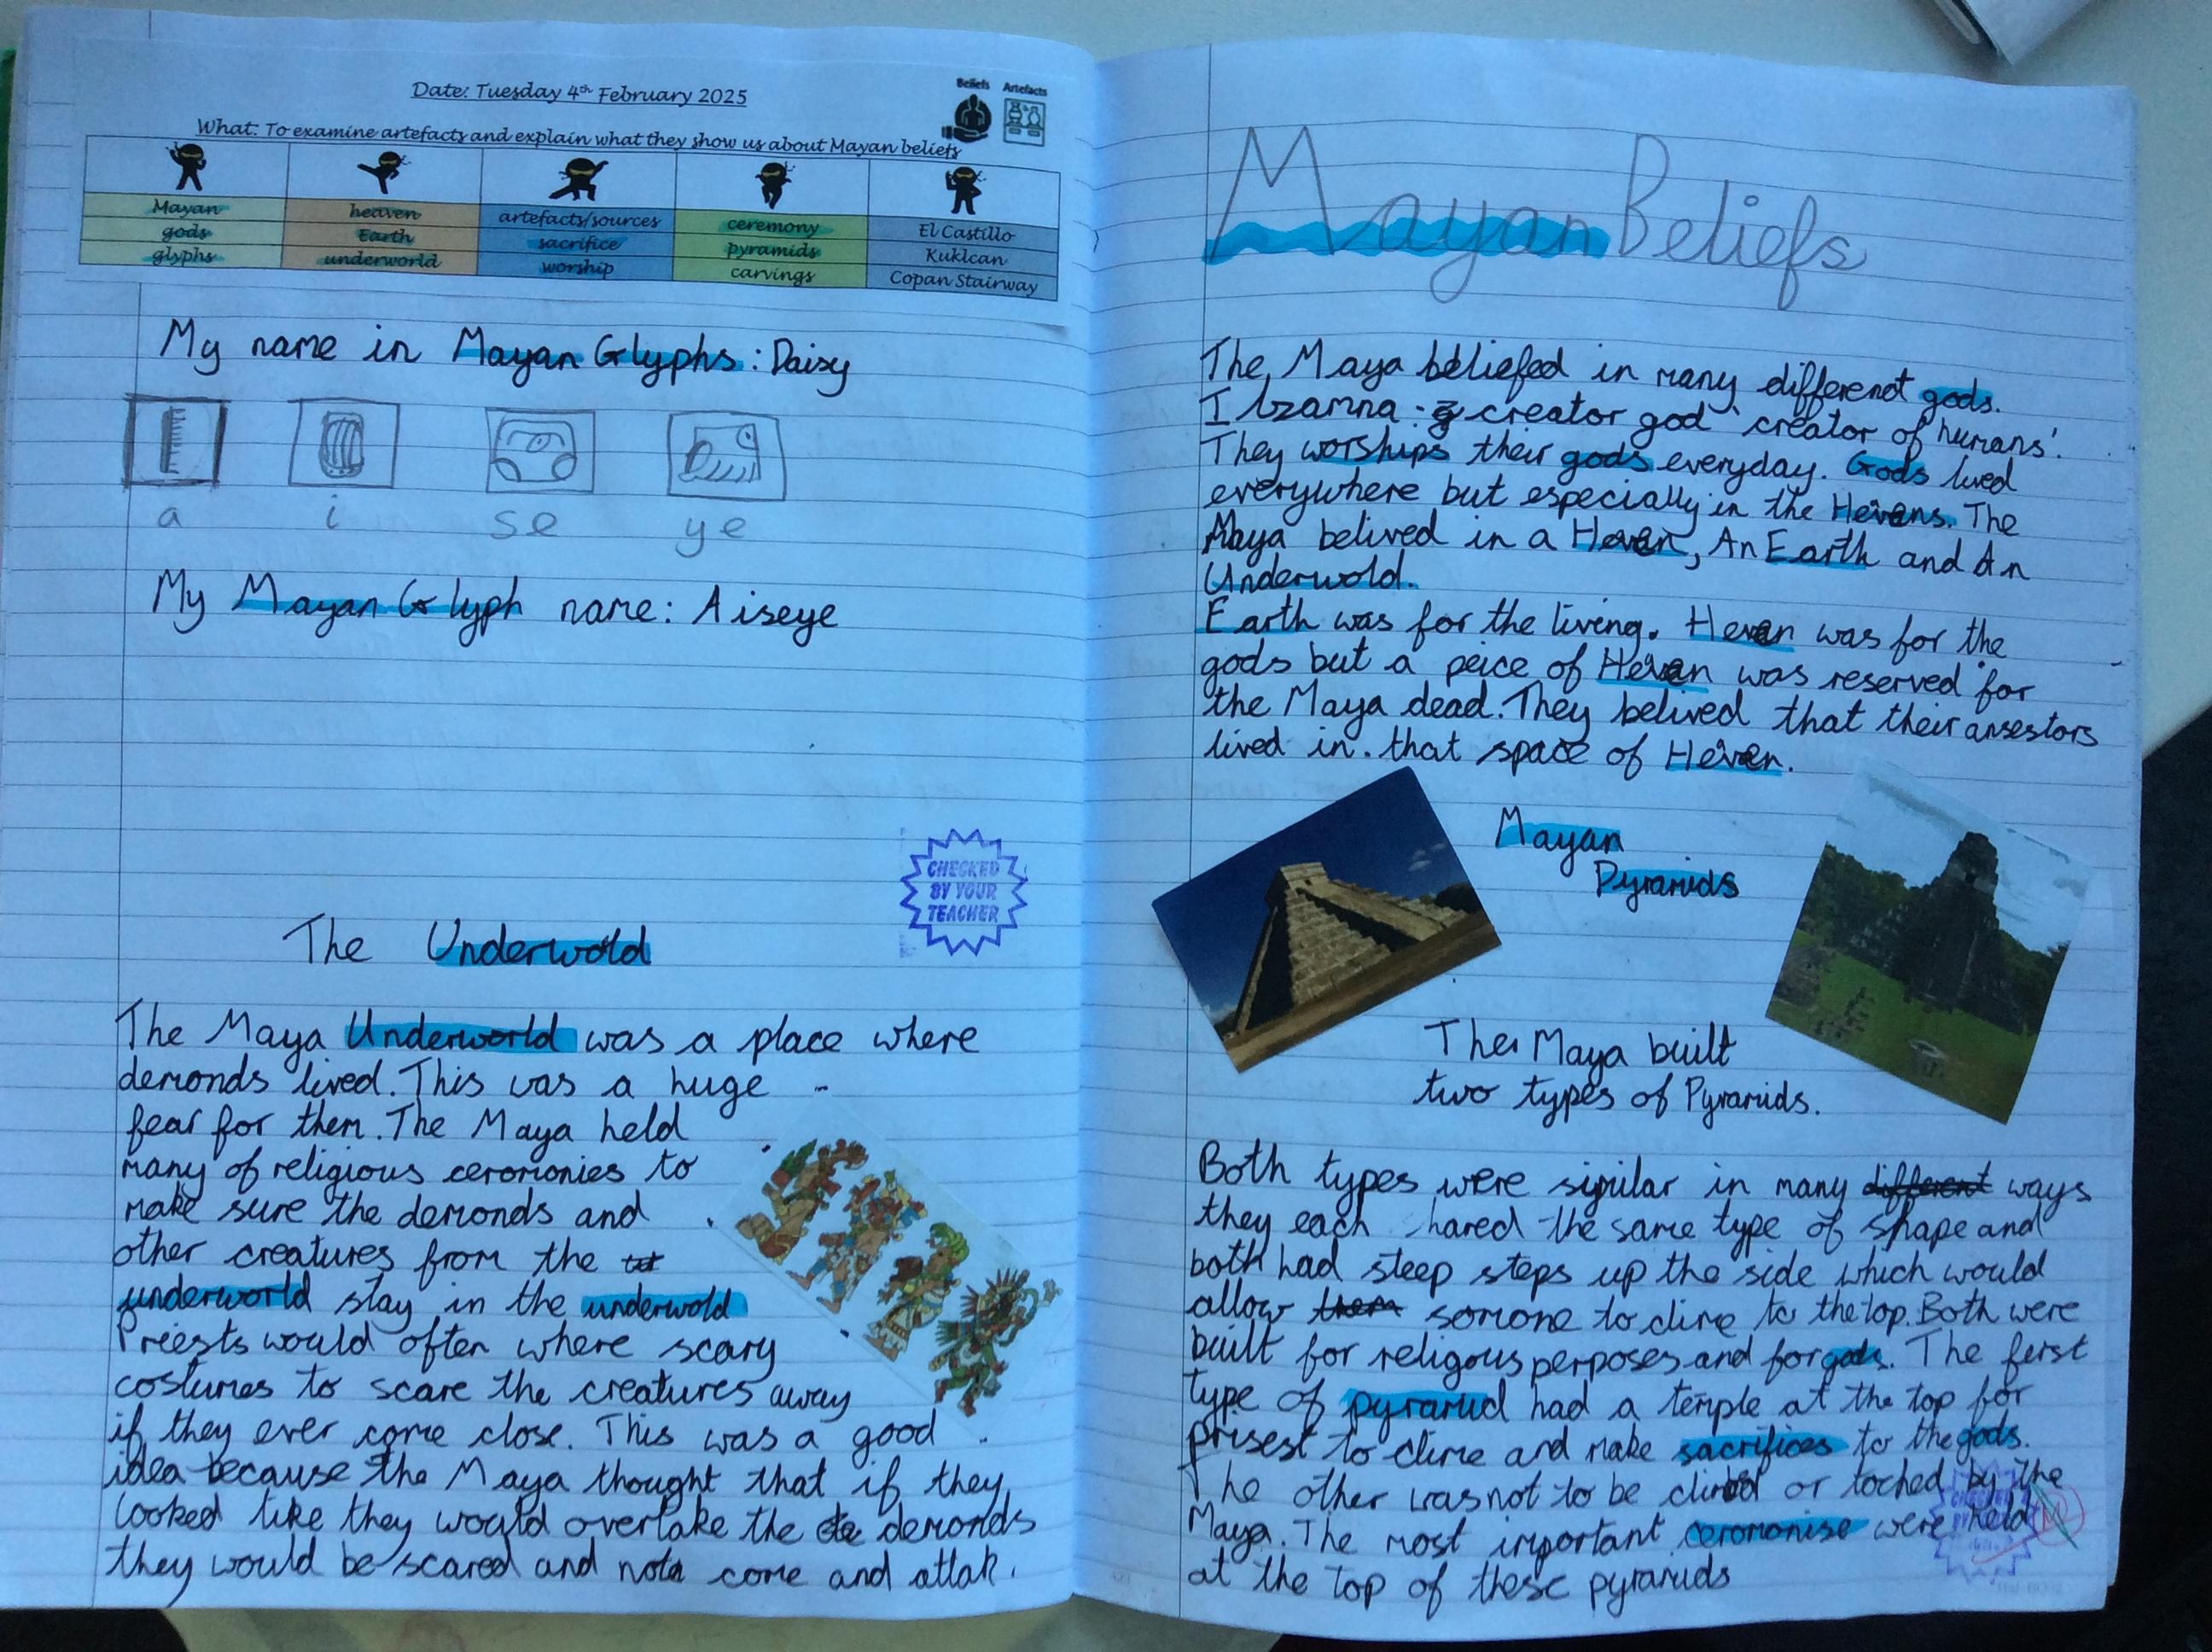 Date: Tuesday 4th February 2025
Beliefs Artefacts
What: To examine artefacts and explain what they show us about Mayan beliefs
Mayan heaven artefacts/sources ceremony El Castillo
gods Earth sacrifice pyramids Kuklcan
glyphs underworld worship carvings Copan Stairway
My name in Mayan Glyphs: Daisy
a i se ye
My Mayan Glyph name: Aiseye
CHECKED
BY YOUR
TEACHER
The Underwold
The Maya Underworld was a place where
demonds lived. This was a huge
fear for them. The Maya held
many of religious ceromonies to
make sure the demonds and
other creatures from the
underworld stay in the underwold
Priests would often where scary
costumes to scare the creatures away
if they ever come close. This was a good
idea because the Maya thought that if they
looked like they would overtake the demonds
they would be scared and not come and attak.
Mayan Beliefs
The Maya beliefed in many differenot gods.
Itzamna: creator god 'creator of humans'.
They worships their gods everyday. Gods lived
everywhere but especially in the Hevens. The
Maya belived in a Heven, An Earth and An
Underwold.
Earth was for the living. Heven was for the
gods but a peice of Heven was reserved for
the Maya dead. They belived that their ansestors
lived in that space of Heven.
Mayan
Pyramids
The Maya built
two types of Pyramids.
Both types were similar in many different ways
they each shared the same type of shape and
both had steep steps up the side which would
allow them somone to clime to the top. Both were
built for religous perposes and for gods. The first
type of pyramid had a temple at the top for
prisest to clime and make sacrifices to the gods.
The other was not to be climbed or toched by the
Maya. The most important ceromonise were held
at the top of these pyramids